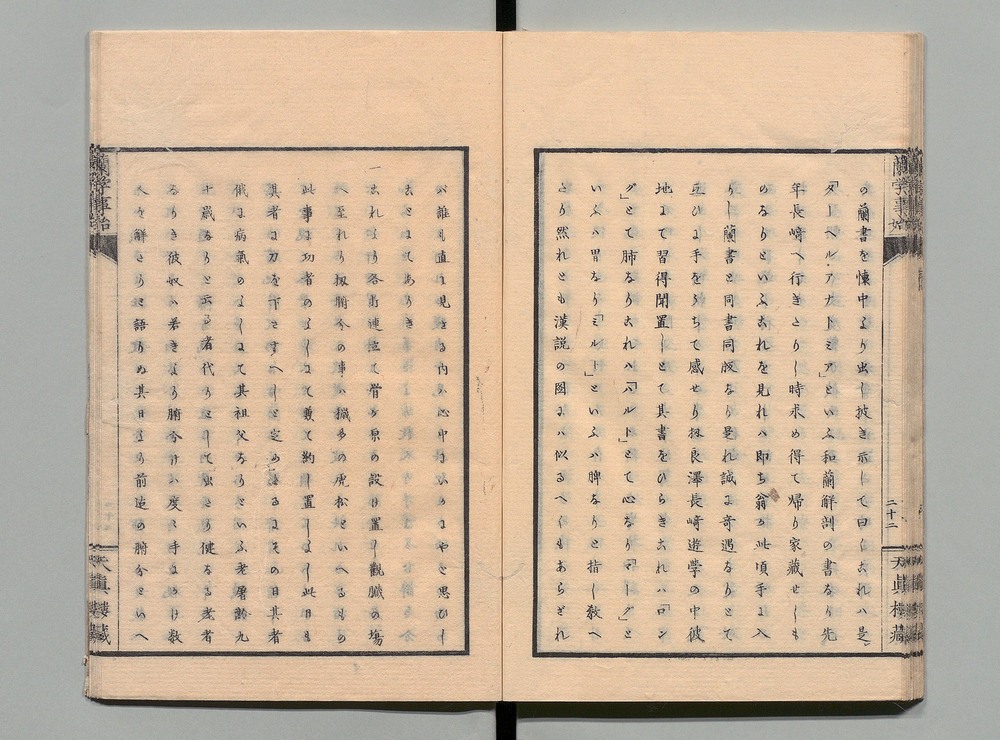 の蘭書を懐中より出し披き示して曰くこれハ是
「ターヘル・アナトミア」といふ和蘭解剖の書なり先
年長崎へ行きたりし時求め得て帰り家蔵せしも
のなりといふこれを見れハ即ち翁か此頃手に入
りし蘭書と同書同版なり是れ誠に奇遇なりとて
互ひに手をうちて感せり扨良澤長崎遊学の中彼
地にて習得聞置しとて其書をひらきこれハ「ロン
グ」とて肺なりこれハ「ハルト」とて心なり「マーグ」と
いふハ胃なり「ミルト」といふハ脾なりと指し教へ
たり然れとも漢説の図にハ似るへくもあらざれ
ハ誰も直に見さる内ハ心中にいかにやと思ひし
ことにてありき
一これより各打連立て骨か原の設け置し観臓の場
へ至れり扨腑分の事ハ穢多の虎松といへるもの
此事に功者のよしにて兼て約し置しよし此日も
其者に刀を下さすへしと定めたるにその日其者
俄に病氣のよしにて其祖父なりといふ老屠齢九
十歳なりと云る者代りとして出たり健なる老者
なりき彼奴ハ若きより腑分けハ度々手にかけ数
人を解きたりと語りぬ其日より前迄の腑分といへ
蘭学事始
二十二
天眞樓藏
蘭学事始
天眞樓藏